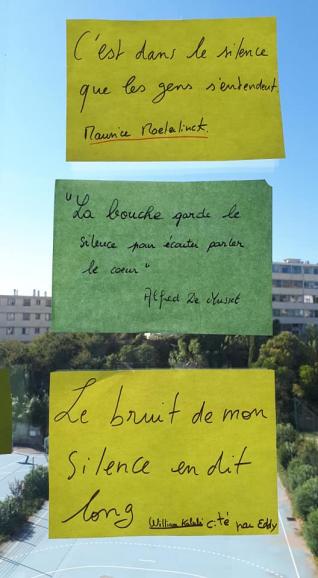 C'est dans le silence
que les gens s'entendent
Maurice Maeterlinck.
"La bouche garde le
silence pour écouter parler
le cœur"
Alfred De Musset
Le bruit de mon
Silence en dit
long William Kalubi cité par Eddy